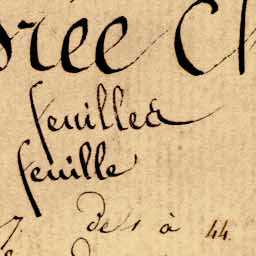 rée C
feuilles
feuille
7. Dell à 44.